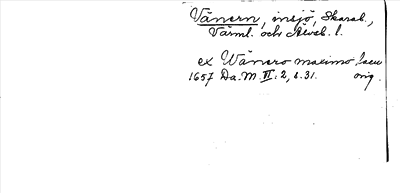 Vänern, insjö, Skarab.,
Värml. och Älvsb. l.
ex Wänero maximo lacu
1657 Da. M. II: 2, s. 31. orig.